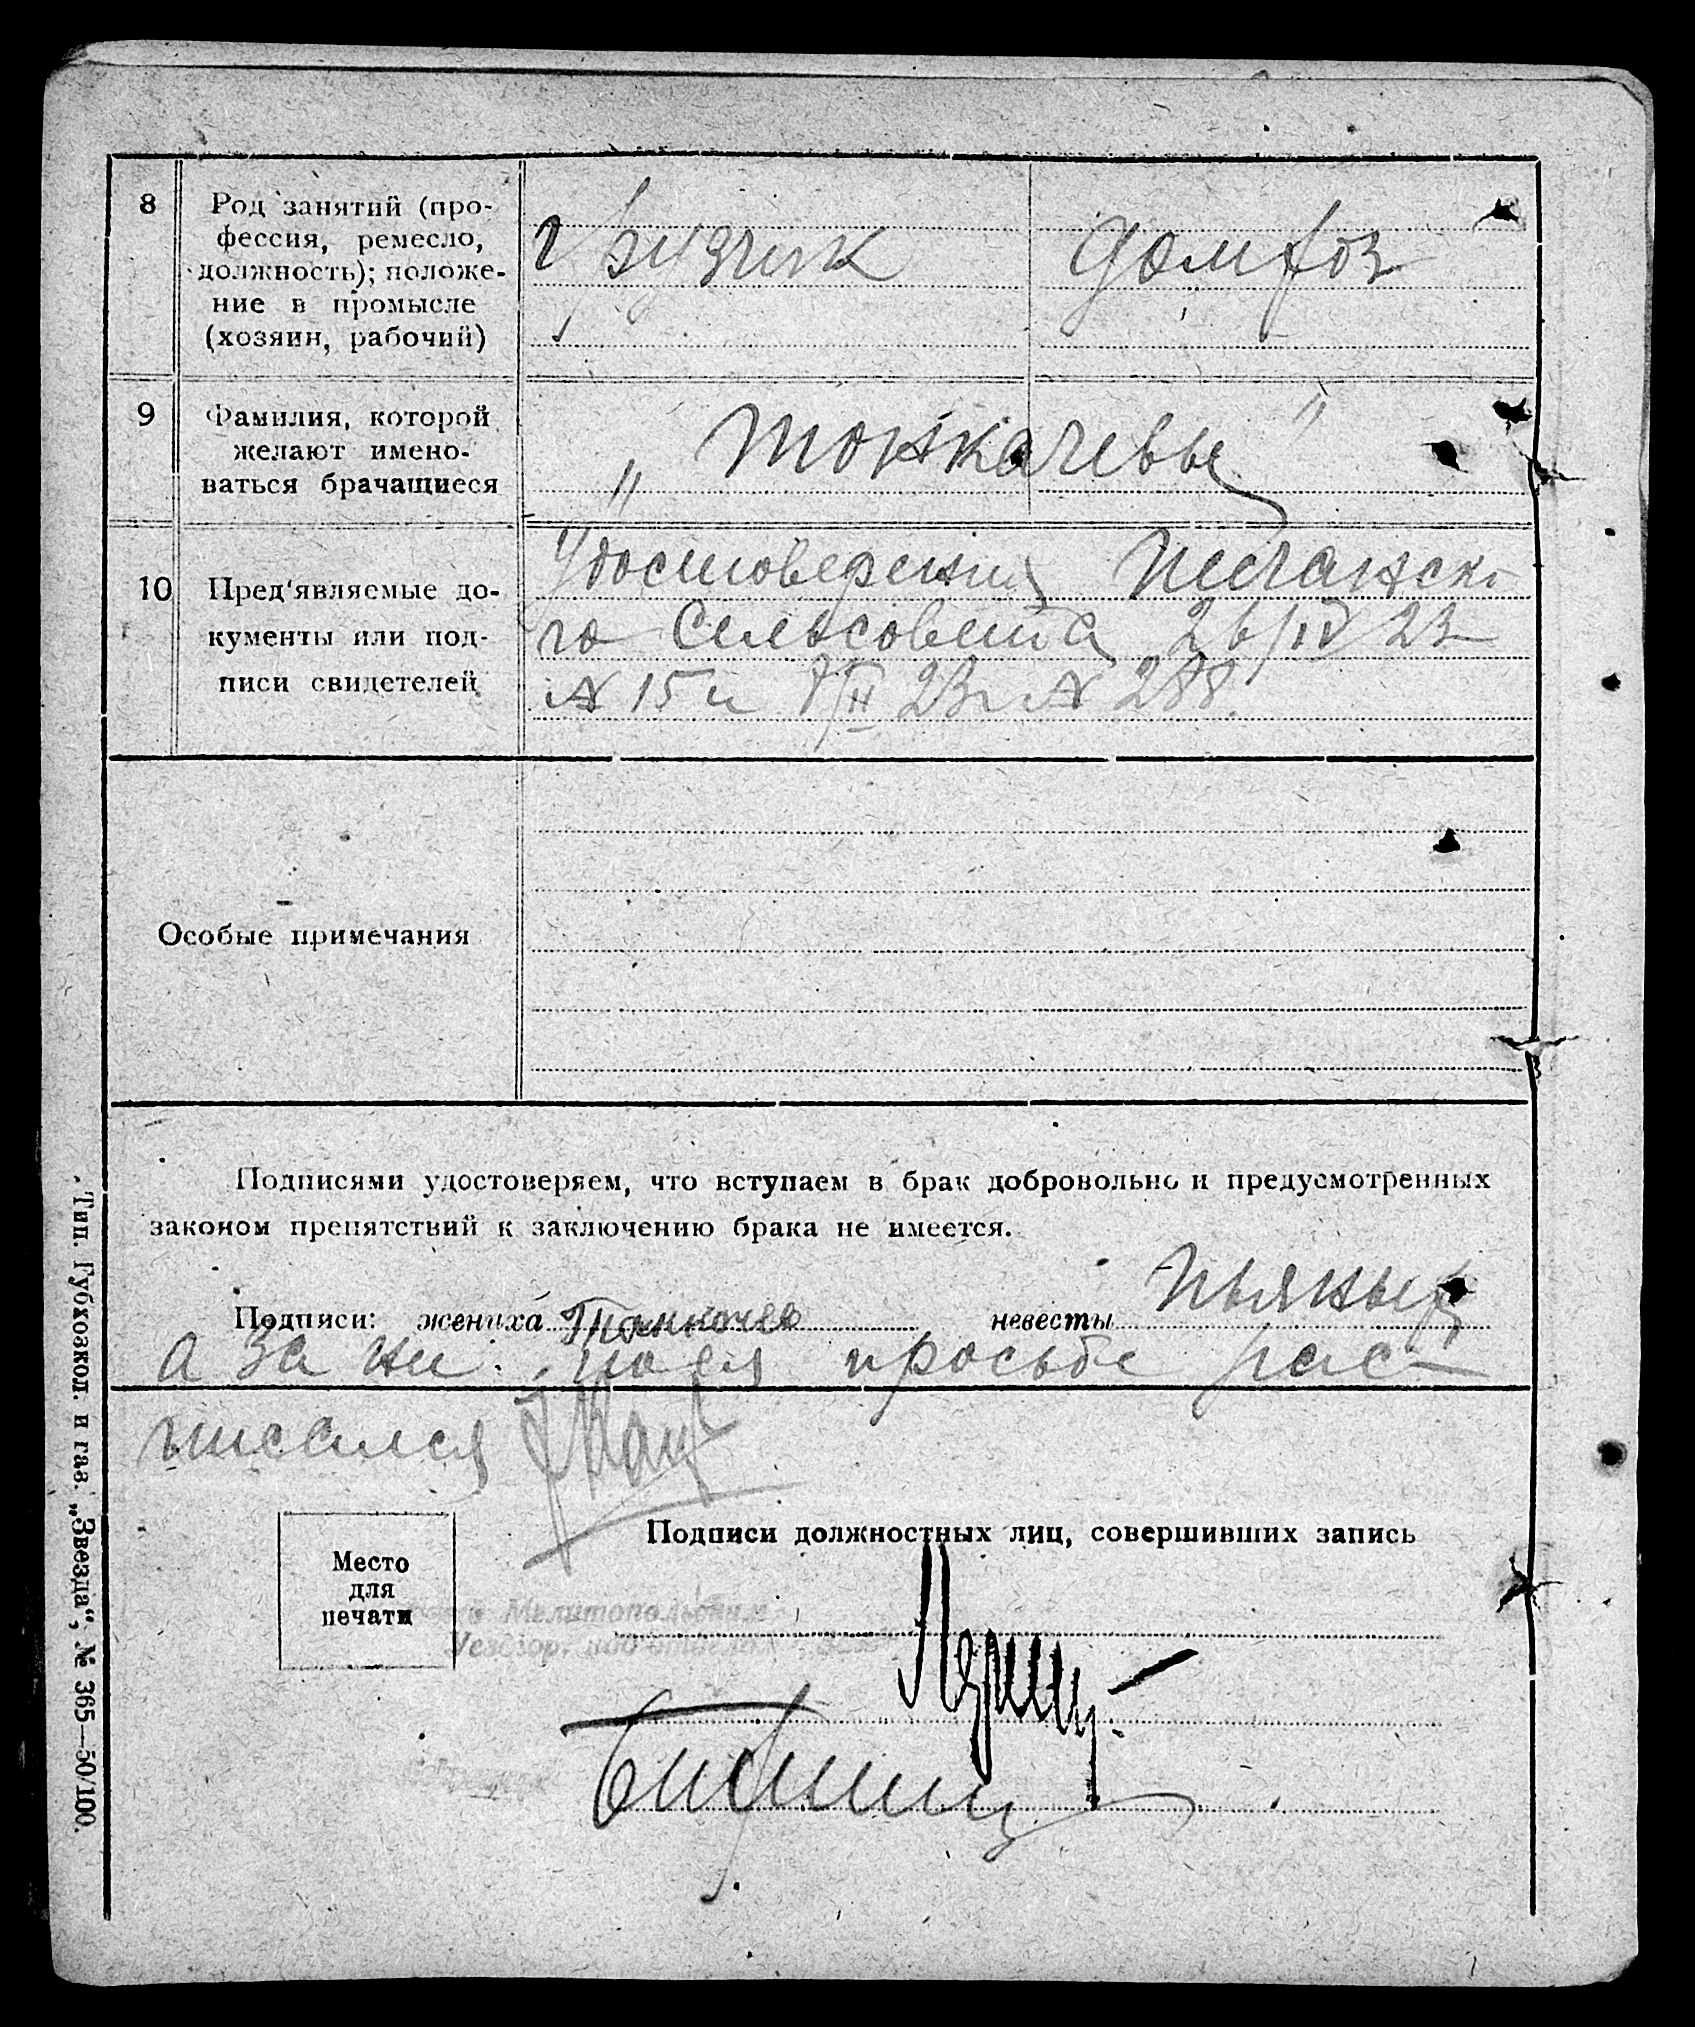 8
Род занятий (про-
фессия, ремесло,
должность); положе-
ние в промысле
(хозяин, рабочий)
Грузчик
домхоз
9
Фамилия, которой
желают имено-
ваться брачащиеся
" Тонкачевы "
10
Пред'являемые до-
кументы или под-
писи свидетелей
Удостоверения Песчанско
го Сельсовета 26/IV 23
№ 15 и 7/II 23 г № 288.
Особые примечания
Подписями удостоверяем, что вступаем в брак добровольно и предусмотренных
законом препятствий к заключению брака не имеется.
Подписи: жениха Тонкочев невесты Пьяных
а за не по ея просьбе рас-
писался
Место
для
печати
Подписи должностных лиц, совершивших запись
Мелитопольским
Тип. Губхозкол. и газ. „Звезда“, № 365—50/100.